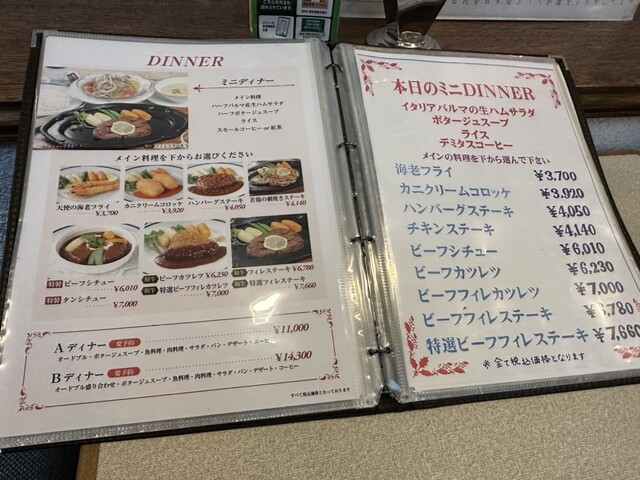 DINNER
ミニディナー
メイン料理
ハーフパルマ産生ハムサラダ
ハーフポタージュスープ
ライス
スモールコーヒー or 紅茶
メイン料理を下からお選びください
天使の海老フライ
¥3,700
カニクリームコロッケ
¥3,920
ハンバーグステーキ
¥4,050
若鶏の網焼きステーキ
¥4,140
特製 ビーフシチュー
¥6,010
特製 タンシチュー
¥7,000
和牛 ビーフカツレツ ¥6,230
和牛 特選ビーフフィレカツレツ
¥7,000
和牛 フィレステーキ ¥6,780
和牛 特選フィレステーキ
¥7,660
Aディナー 要予約 ¥11,000
オードブル・ポタージュスープ・魚料理・肉料理・サラダ・パン・デザート・コーヒー
Bディナー 要予約 ¥14,300
オードブル盛り合わせ・ポタージュスープ・魚料理・肉料理・サラダ・パン・デザート・コーヒー
すべて税込価格となっております
本日のミニDINNER
イタリアパルマの生ハムサラダ
ポタージュスープ
ライス
デミタスコーヒー
メインの料理を下から選んで下さい
海老フライ ¥3,700
カニクリームコロッケ ¥3,920
ハンバーグステーキ ¥4,050
チキンステーキ ¥4,140
ビーフシチュー ¥6,010
ビーフカツレツ ¥6,230
ビーフフィレカツレツ ¥7,000
ビーフフィレステーキ ¥6,780
特選ビーフフィレステーキ ¥7,66
※全て税込価格となります